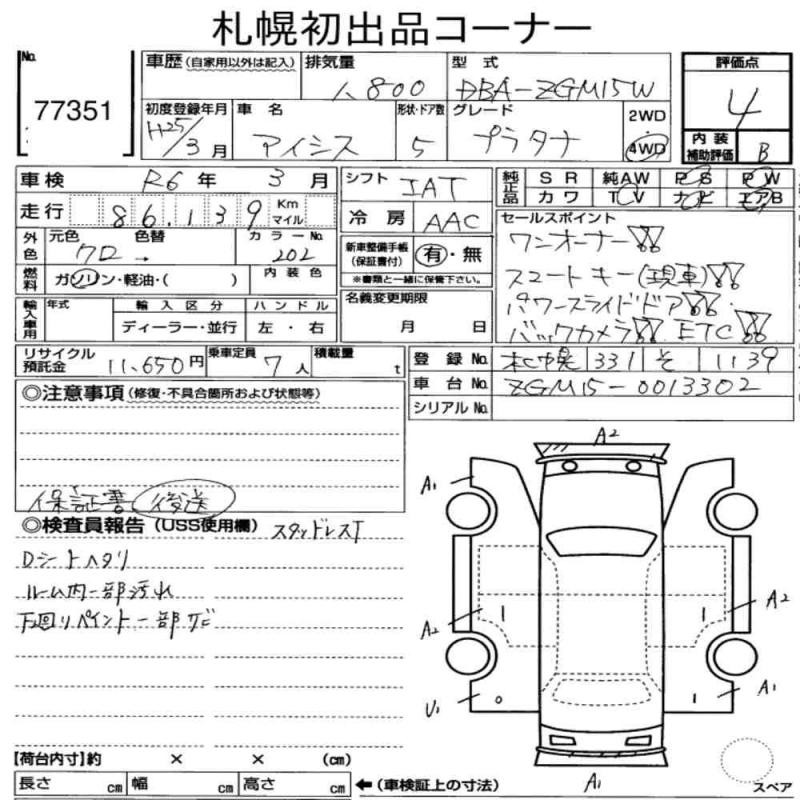 札幌初出品コーナー
No.
77351
車歴 (自家用以外は記入) 排気量 1,800 型式 DBA-ZGM15W
初度登録年月 H25/3月 車名 アイシス 形状・ドア数 5 グレード プラタナ 2WD 4WD
評価点 4
内装補助評価 B
車検 R6年 3月
走行 86,139 Km マイル
外色 元色 クロ 色替 → カラーNo. 202
燃料 ガソリン・軽油・( ) 内装色
輸入車用 年式 輸入区分 ハンドル
ディーラー・並行 左・右
リサイクル預託金 11,650円 乗車定員 7人 積載量 t
シフト IAT
冷房 AAC
新車整備手帳(保証書付) 有・無
※書類と一緒に保管下さい。
名義変更期限
月 日
純正品 SR 純AW PS PW
カワ TV ナビ エアB
セールスポイント
ワンオーナー!!
スマートキー(現車)!!
パワースライドドア!!
バックカメラ!! ETC!!
登録No. 札幌 331 そ 1139
車台No. ZGM15-0013302
シリアルNo.
◎注意事項 (修復・不具合箇所および状態等)
保証書 後送
◎検査員報告 (USS使用欄) スタッドレスT
Dシートヘタリ
ルーム内一部汚れ
下回りペイント一部サビ
A2
A1
A2
A2
U1
A1
A1
【荷台内寸】約 × × (cm)
長さ cm 幅 cm 高さ cm ←(車検証上の寸法)
スペア